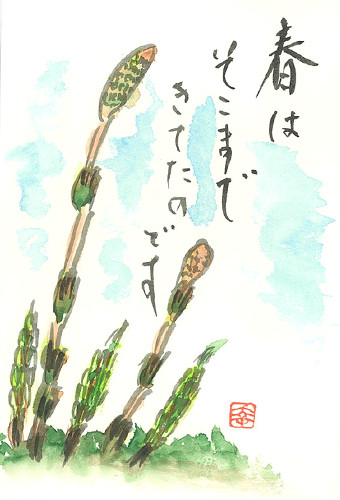 春は
そこまで
きてたの
です